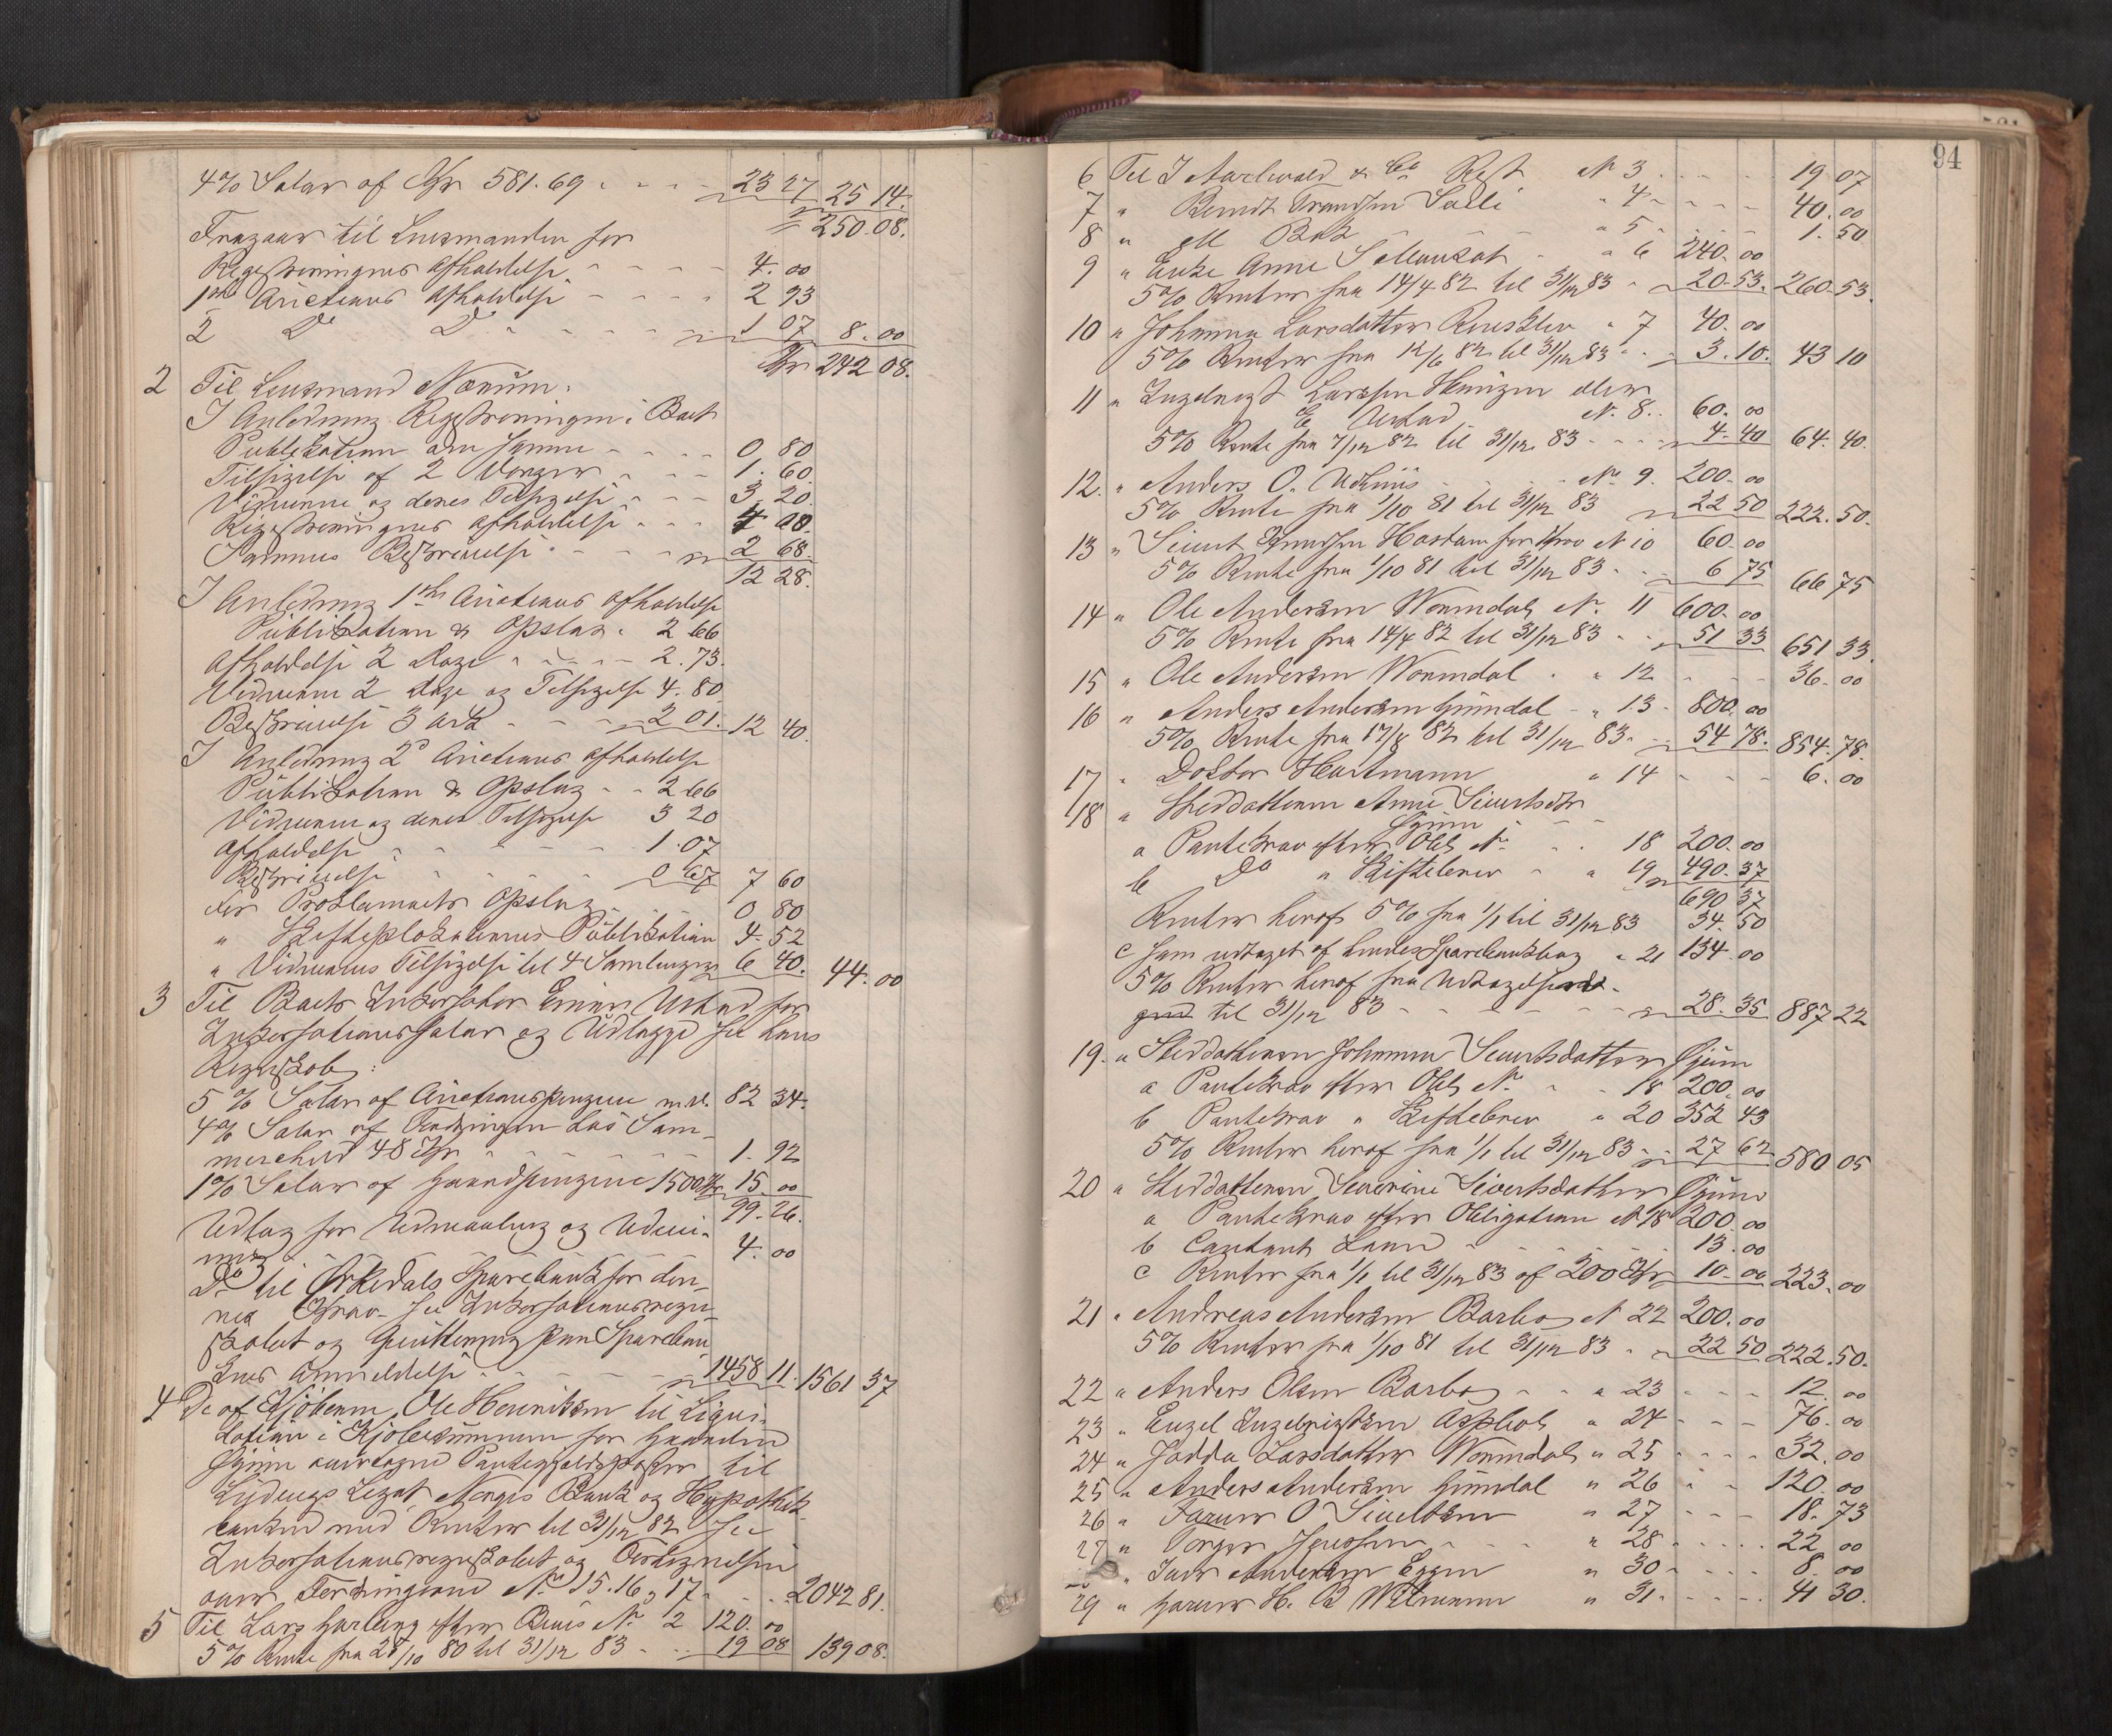 4% Salær af Kr 581.69 . . . 23 27 25 14.
= 250.08.
Fragaar til Lensmanden for
Registreringens Afholdelse - - - - 4. 00
1ste Auctions Afholdelse - - - - 2 93
2 Do Do - - - - 1 07 8. 00
Kr 242 08.
2 Til Lensmand Norum.
I Anledning Registreringen i Boet
Publikation om samme - - - - 0 80
Tilsigelse af 2 - - - 1. 60
Vidnerne og deres Tilsigelse - - - 3. 20.
Registreringens Afholdelse - - - 4 00
Sammes Beskrivelse - - - - 2 68.
12 28.
I Anledning 1ste Auctions Afholdelse
Publikation & Opslag . 2 66
Afholdelse 2 Dage - - - - 2. 73.
Vidnerne 2 Dage og Tilsigelse 4. 80
Beskrivelse 3 Ark - - - 2 01. 12 40.
I Anledning 2den Auctions Afholdelse
Publikation & Opslag - - 2 66
Vidnerne og deres Tilsigelse 3 20
Afholdelse - - - - - 1. 07
Beskrivelse - - - 0 67 7 60
for Proklamaets Opslag - - 0 80
" Publikation 4. 52
" Tilsigelse til 4 Samlinger 6 40. 44. 00
3 Til Boets Inkassator Einar Ustad for
Inkassationssalær og Udlægge se hans
Regnskab:
5% Salær af Auctionspengene m.v. 82 34.
4% Salær af Sam-
48 Kr - - - - 1. 92
1% Salær af Gaardspengene 1500 Kr 15. 00
99. 26.
Udlæg for og
4. 00
Do til Ørkedals Sparebank for den-
nes Krav se Inkassationsregn-
skabet og Spareban-
kens Anmeldelse - - - - 1458 11. 1561 37
4 De af Kjøberen Ole Henriksen til Liqui-
dation i Kjøbesummen for Gaarden
Gjønn overtagne Pantegjældsposter til
Legat, Norges Bank og Hypothek-
banken med Renter til 31/12 82 se
Inkassationsregnskabet og
over No 15. 16 og 17 - - - 2042 81.
5 Til Lars Garberg efter Bevis No 2 120. 00
5% Rente fra 28/10 80 til 31/12 83 - - 19 08 139 08.
94
6 Til I & Co Rest No 3 - - - 19 07
7 " Berndt - " 4 - - - 40. 00
8 " M Bak " 5 - - - 1. 50
9 " Enke Anne " 6 240. 00
5% Renter fra 14/4 82 til 31/12 83 - 20. 53. 260. 53.
10 " Johanna Larsdatter " 7 40. 00
5% Renter fra 12/6 82 til 31/12 83 - 3. 10. 43 10
11 " Ingebrigt Larssen eller
E Ustad No 8. . 60. 00
5% Rente fra 7/12 82 til 31/12 83 - - - 4. 40 64. 40.
12. " Anders O. No 9. 200. 00
5% Rente fra 1/10 81 til 31/12 83 22 50 222. 50.
13 " Sivert for Krav No 10 60. 00
5% Rente fra 1/10 81 til 31/12 83 - - 6 75 66 75
14 " Ole Andersen Wormdal No 11 600. 00
5% Rente fra 14/4 82 til 31/12 83 - - 51 33 651 33.
15 " Ole Andersen Wormdal . " 12 - - - 36. 00
16 " Anders Andersen Grindal - " 13 - 800. 00
5% Rente fra 17/8 82 til 31/12 83. - 54 78. 854. 78.
17 " Doktor Hartmann " 14 - - - 6. 00
18 " Steddatteren Anne Sivertsdtr
Gjønn - - -
a Pantekrav efter Obl No - - 18 200. 00
b Do " Skiftebrev - " 19 490. 37
690 37
Renter heraf 5% fra 1/1 til 31/12 83 34. 50
c Som udtaget af hendes Sparebankbog " 21 134. 00
5% Renter heraf fra
til 31/12 83 - - - - - 28. 35 887 22
19. " Steddatteren Johanna Sivertsdatter Gjønn
a Pantekrav efter Obl No - - 18 200. 00
b Pantekrav " Skiftebrev " 20 352 43
5% Renter heraf fra 1/1 til 31/12 83 - - 27 62 580 05
20 " Steddatteren Severine Sivertsdatter Gjønn
a Pantekrav efter Obligation No 18 200. 00
b Contant Laan - - - - 13. 00
c Renter fra 1/1 til 31/12 83 af 200 Kr 10. 00 223. 00
21 " Andreas Andersen Barbo No 22 200. 00
5% Renter fra 1/10 81 til 31/12 83 - - 22 50 222. 50.
22 " Anders Olsen Barbo - - " 23 - - - 12. 00
23 " Engel Ingebrigtsen Asphol " 24 - - - 76. 00
24 " Jödda Larsdatter Wormdal " 25 - - - - 32. 00
25 " Anders Andersen Grindal " 26 - - 120. 00
26 " O Sivertsen " 27 - - - 18. 73
27 " Torger - - - " 28 - - - - 22 00
" Andersen Eggen " 30 - - - - 8. 00
29 " H. B " 31. - - - - 41 30.